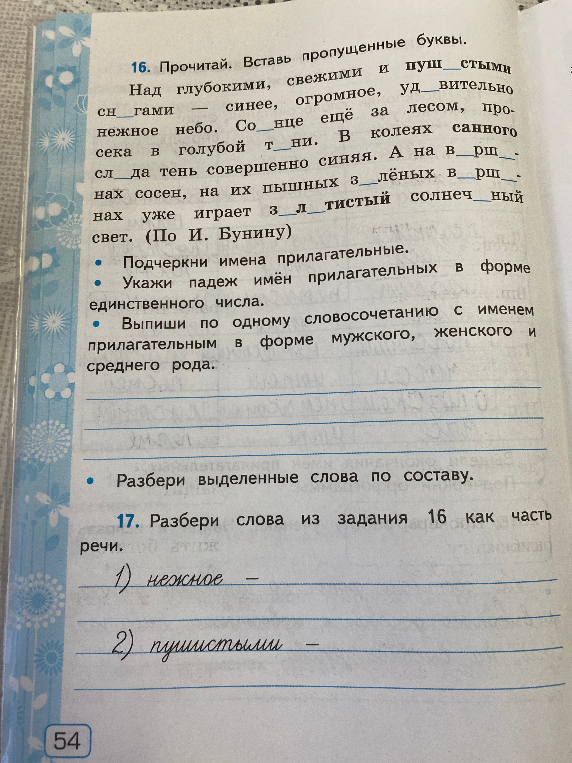 16. Прочитай. Вставь пропущенные буквы.
Над глубокими, свежими и пуш__стыми
сн__гами — синее, огромное, уд__вительно
нежное небо. Со__нце ещё за лесом, про-
сека в голубой т__ни. В колеях санного
сл__да тень совершенно синяя. А на в__рш__-
нах сосен, на их пышных з__лёных в__рш__-
нах уже играет з__л__тистый солнеч__ный
свет. (По И. Бунину)
• Подчеркни имена прилагательные.
• Укажи падеж имён прилагательных в форме
единственного числа.
• Выпиши по одному словосочетанию с именем
прилагательным в форме мужского, женского и
среднего рода.
• Разбери выделенные слова по составу.
17. Разбери слова из задания 16 как часть
речи.
1) нежное —
2) пушистыми —
54